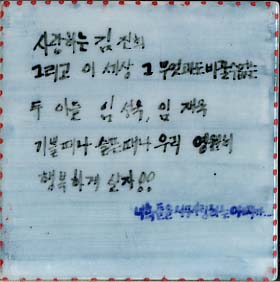 사랑하는 김진희
그리고 이 세상 그 무엇과도 바꿀수없는
두 아들 임성욱, 임재욱
기쁠때나 슬플때나 우리 영원히
행복하게 살자!!
너희들을